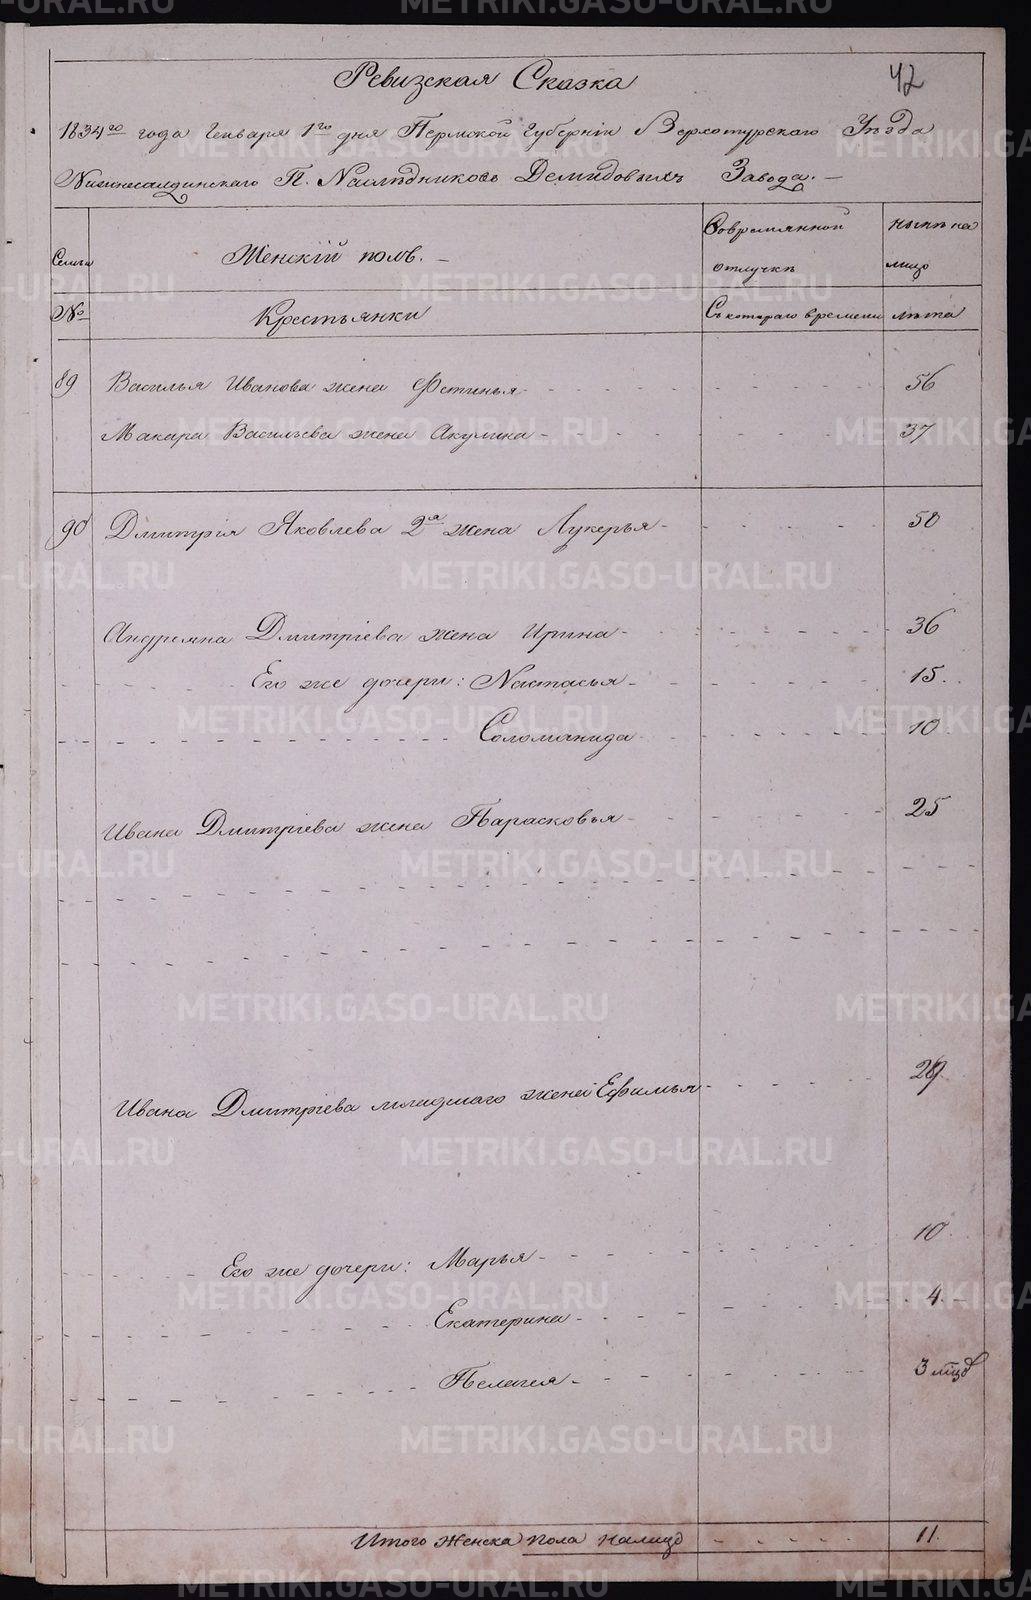 42
Ревизская Сказка
1834го года Генваря 1го дня Пермской Губерніи Верхотурскаго Уѣзда
Нижнесалдинскаго П. Наслѣдниковъ Демидовыхъ Завода. —
Семьи
Женскій полъ. —
Во временной отлучкѣ
ныне на лицо
№
Крестьянки
Съ котораго времени
лѣта
89 Василья Иванова жена Фетинья 56
Макара Васильева жена Акулина 37
90 Дмитрія Яковлева 2я жена Лукерья 50
Андреяна Дмитріева жена Ирина 36
Его же дочери: Настасья 15.
Соломанида 10
Ивана Дмитріева жена Парасковья 25
Ивана Дмитріева меньшаго жена Ефимья 29
Его же дочери: Марья 10
Екатерина 4. –
Пелагея 3 мцѣ
Итого женска пола налицо 11.
METRIKI.GASO-URAL.RU